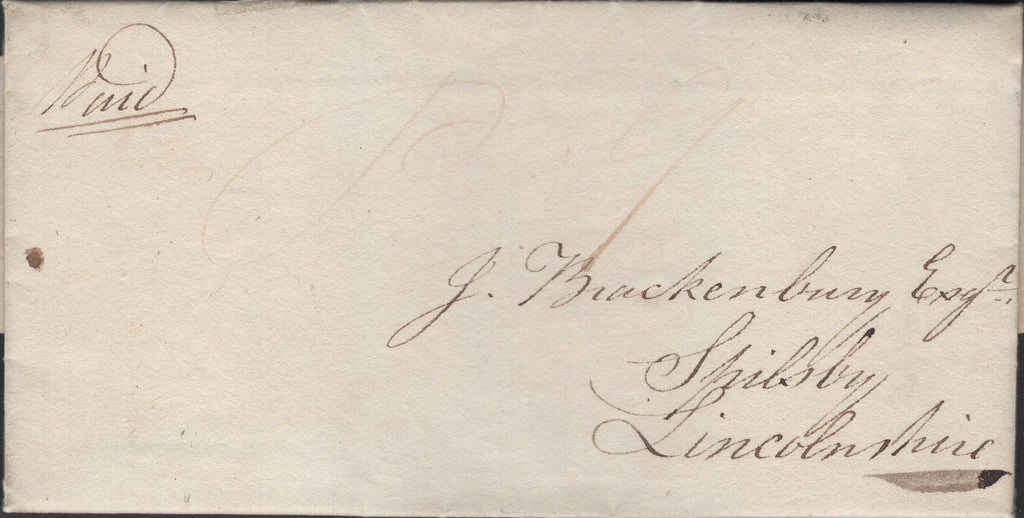 Paid
J. Brackenbury Esqr.
Spilsby
Lincolnshire